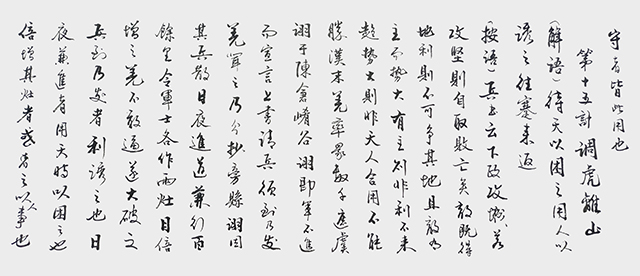 守者皆此用也
第十五計 調虎離山
(解语)待天以困之用人以
诱之往蹇来返
(按语)兵书云下政攻城若
攻坚則自取敗亡矣敵既得
地利則不可争其地且敵有
主而势大有主则非利不来
趨势大则非天人合用不能
勝漢末羌率眾數千遮虞
诩于陳倉崤谷诩即軍不進
而宣言上書請兵须到乃发
羌聞之乃分抄旁縣诩因
其兵散日夜進道兼行百
餘里令軍士各作兩灶日倍
增之羌不敢逼遂大破之
兵到乃发者利诱之也日
夜兼進者用天時以困之也
倍增其灶者惑者之以人事也